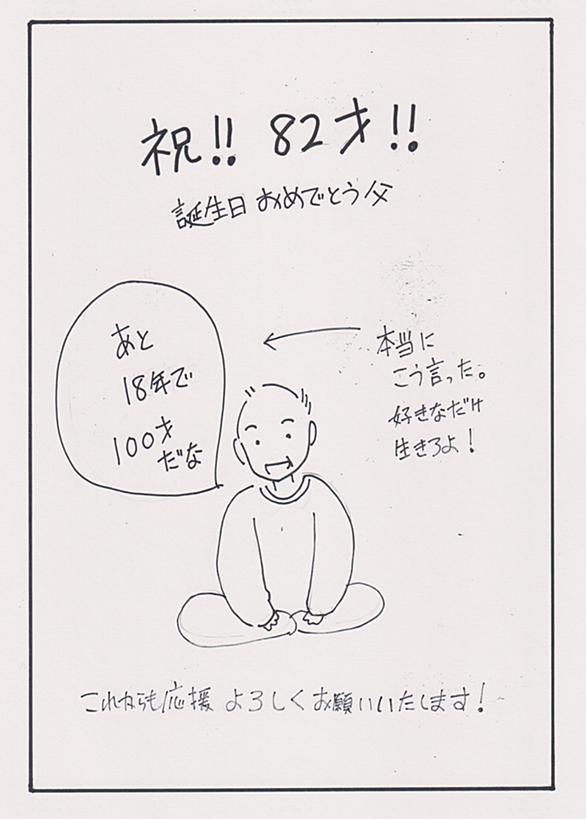 祝!! 82才!!
誕生日おめでとう父
あと
18年で
100才
だな
本当に
こう言った。
好きなだけ
生きろよ!
これからも応援よろしくお願いいたします!